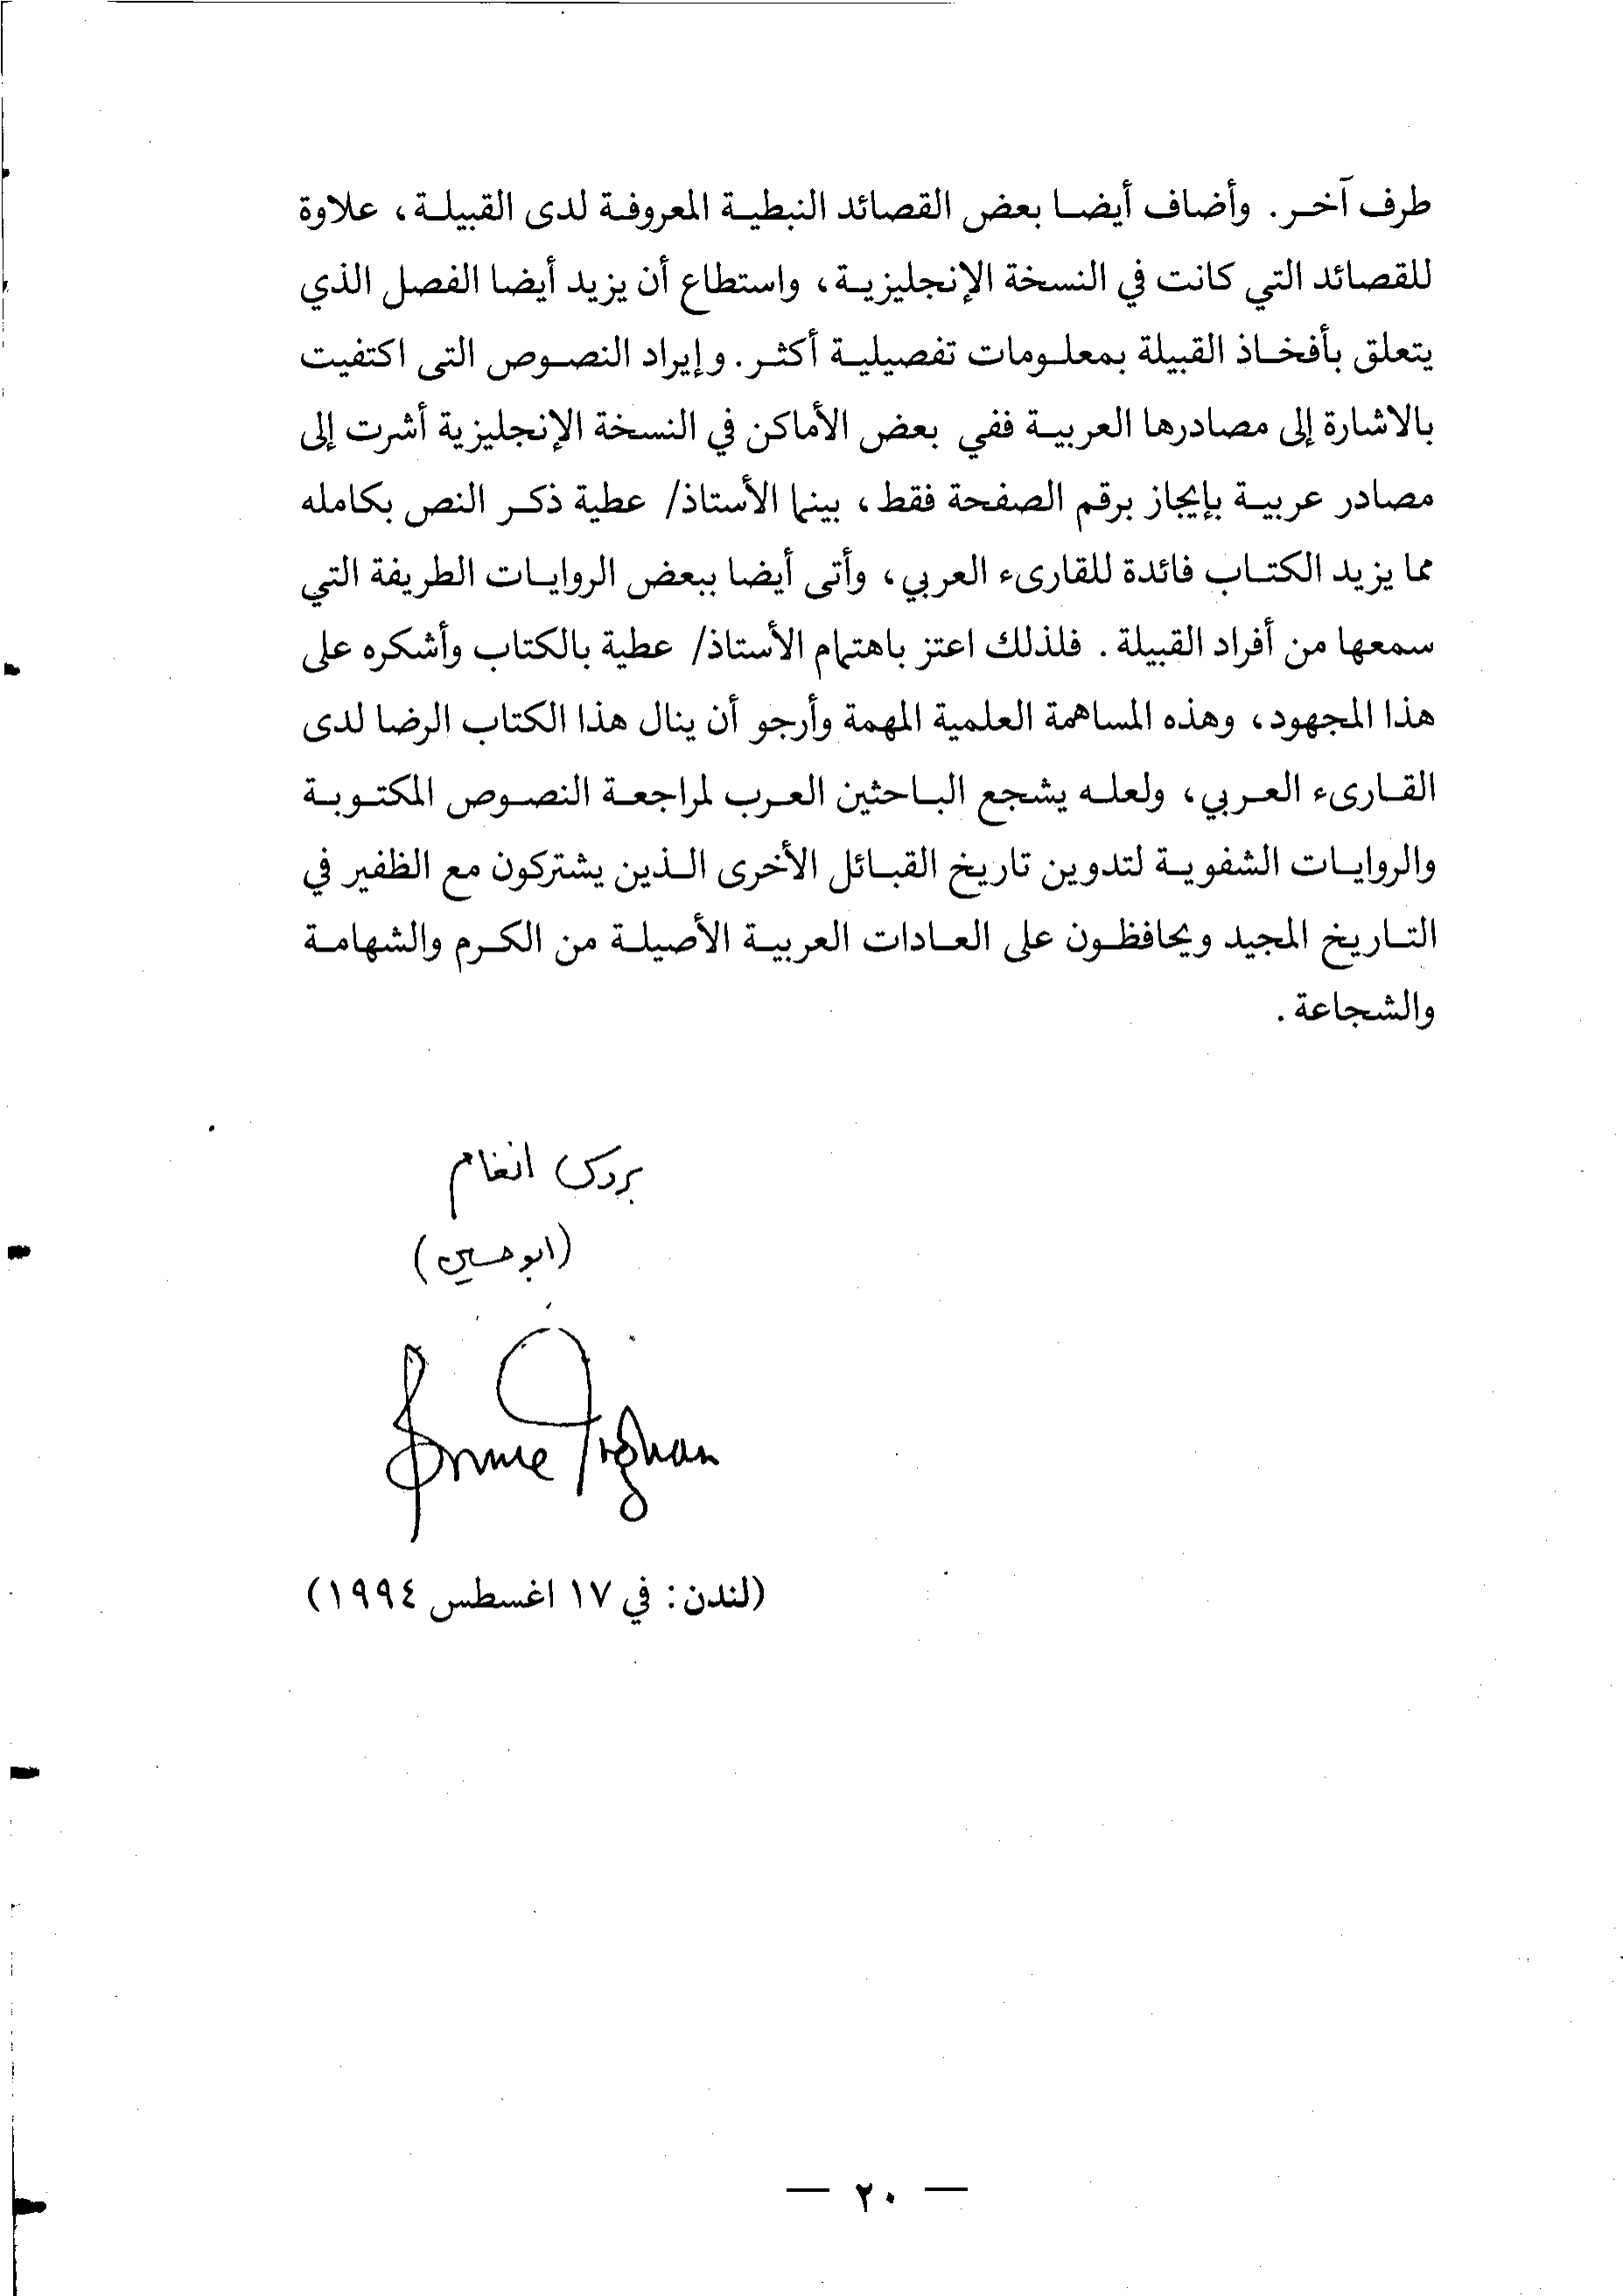 طرف آخر. وأضاف أيضا بعض القصائد النبطية المعروفة لدى القبيلة، علاوة
للقصائد التي كانت في النسخة الإنجليزية، واستطاع أن يزيد أيضا الفصل الذي
يتعلق بأفخاذ القبيلة بمعلومات تفصيلية أكثر. وإيراد النصوص التى اكتفيت
بالاشارة إلى مصادرها العربية ففي بعض الأماكن في النسخة الإنجليزية أشرت إلى
مصادر عربية بإيجاز برقم الصفحة فقط، بينما الأستاذ/ عطية ذكر النص بكامله
مما يزيد الكتاب فائدة للقارىء العربي، وأتى أيضا ببعض الروايات الطريفة التي
سمعها من أفراد القبيلة. فلذلك اعتز باهتمام الأستاذ/ عطية بالكتاب وأشكره على
هذا المجهود، وهذه المساهمة العلمية المهمة وأرجو أن ينال هذا الكتاب الرضا لدى
القارىء العربي، ولعله يشجع الباحثين العرب لمراجعة النصوص المكتوبة
والروايات الشفوية لتدوين تاريخ القبائل الأخرى الذين يشتركون مع الظفير في
التاريخ المجيد ويحافظون على العادات العربية الأصيلة من الكرم والشهامة
والشجاعة.
بروس انغام
(ابو حسين)
Bruce Ingham
(لندن: في ١٧ اغسطس ١٩٩٤)
— ٢٠ —